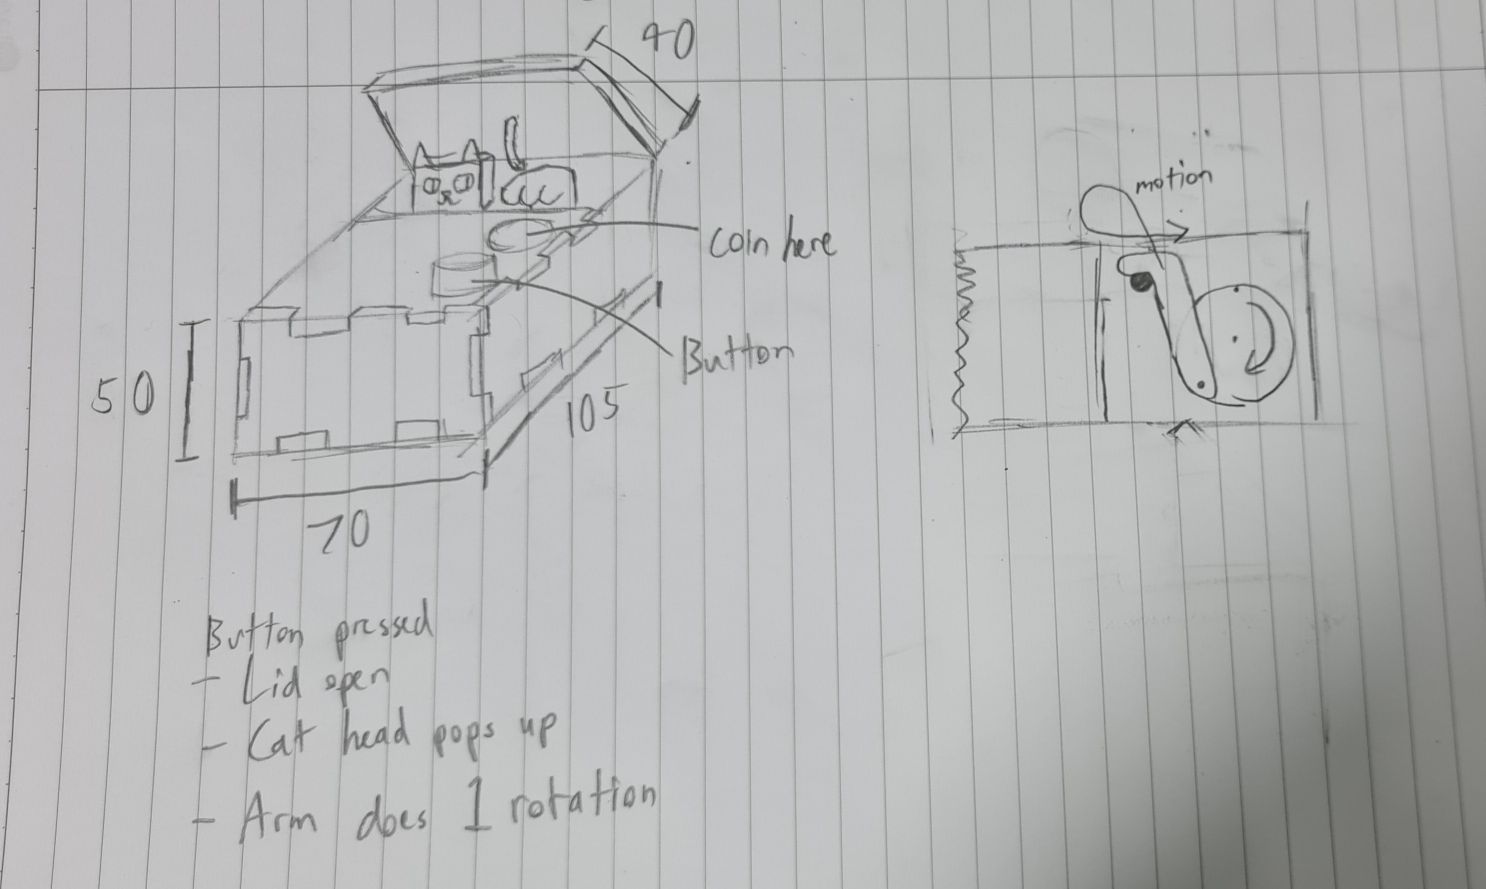 40
motion
Coin here
Button
50
105
70
Button pressed
- Lid open
- Cat head pops up
- Arm does 1 rotation